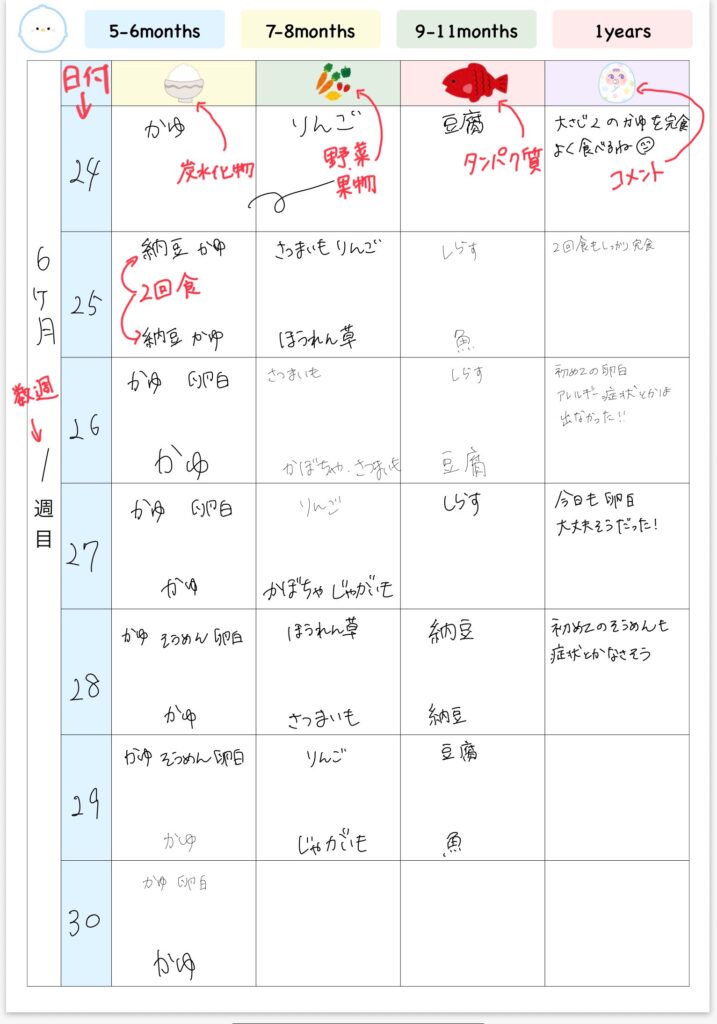 5-6months
7-8months
9-11months
1years
日付
炭水化物
野菜
果物
タンパク質
コメント
6ヶ月
数週
1週目
24
かゆ
りんご
豆腐
大さじ2のかゆを完食
よく食べるね
25
納豆 かゆ
さつまいも りんご
しらす
2回食もしっかり完食
2回食
納豆 かゆ
ほうれん草
魚
26
かゆ 卵白
さつまいも
しらす
初めての卵白
アレルギー症状とかは
出なかった!!
かゆ
かぼちゃ、さつまいも
豆腐
27
かゆ 卵白
りんご
しらす
今日も卵白
大丈夫そうだった!
かゆ
かぼちゃ じゃがいも
28
かゆ そうめん 卵白
ほうれん草
納豆
初めてのそうめんも
症状とかなさそう
かゆ
さつまいも
納豆
29
かゆ そうめん 卵白
りんご
豆腐
かゆ
じゃがいも
魚
30
かゆ 卵白
かゆ